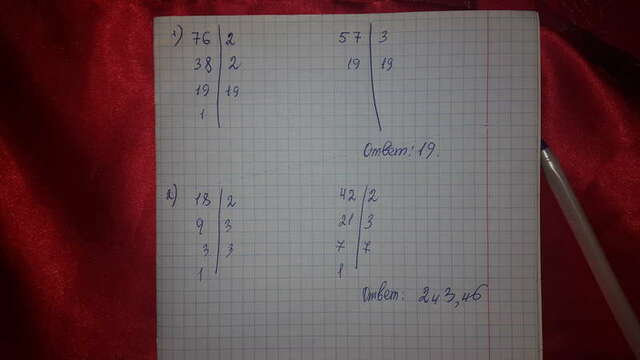 1) 76 | 2 57 | 3
38 | 2 19 | 19
19 | 19
1
Ответ: 19.
2) 18 | 2 42 | 2
9 | 3 21 | 3
3 | 3 7 | 7
1 1
Ответ: 2 и 3, и 6